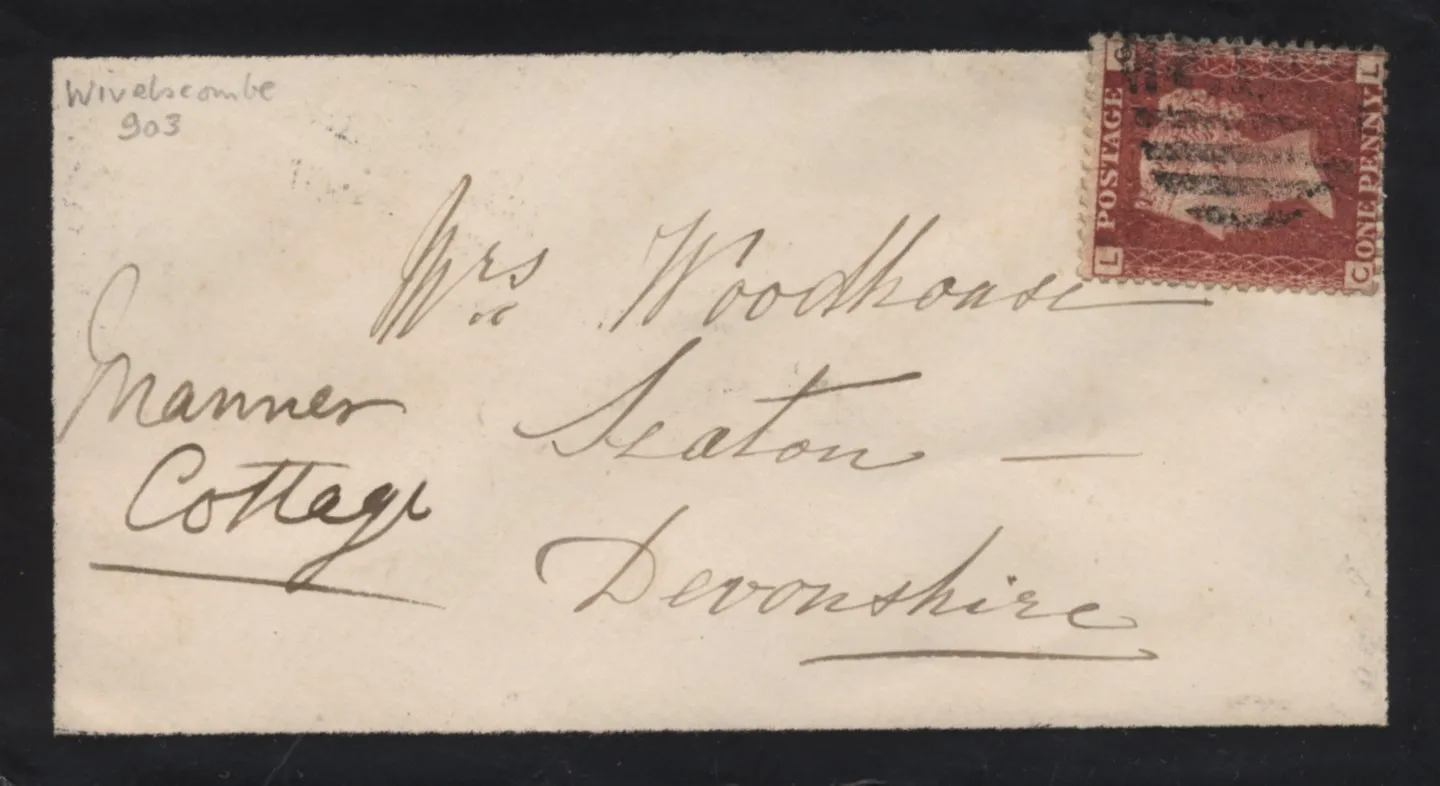 Wivelscombe
903
Mrs Woodhouse
Seaton —
Devonshire
Manner
Cottage
POSTAGE
ONE PENNY
L
C
C
L